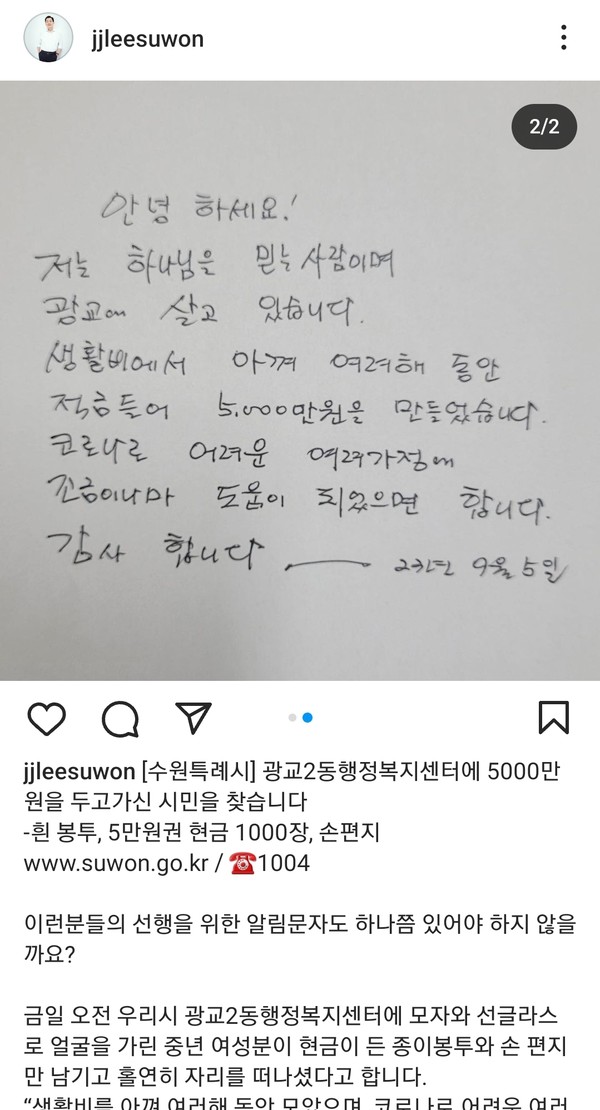 jjleesuwon
2/2
안녕 하세요!
저는 하나님을 믿는 사람이며
광교에 살고 있습니다.
생활비에서 아껴 여러해 동안
적금들어 5,000만원을 만들었습니다.
코로나로 어려운 여러가정에
조금이나마 도움이 되었으면 합니다.
감사 합니다 — 23년 9월 5일
jjleesuwon [수원특례시] 광교2동행정복지센터에 5000만
원을 두고가신 시민을 찾습니다
-흰 봉투, 5만원권 현금 1000장, 손편지
www.suwon.go.kr / ☎️1004
이런분들의 선행을 위한 알림문자도 하나쯤 있어야 하지 않을
까요?
금일 오전 우리시 광교2동행정복지센터에 모자와 선글라스
로 얼굴을 가린 중년 여성분이 현금이 든 종이봉투와 손 편지
만 남기고 홀연히 자리를 떠나셨다고 합니다.
“생활비를 아껴 여러해 동안 모았으며, 코로나로 어려운 여러